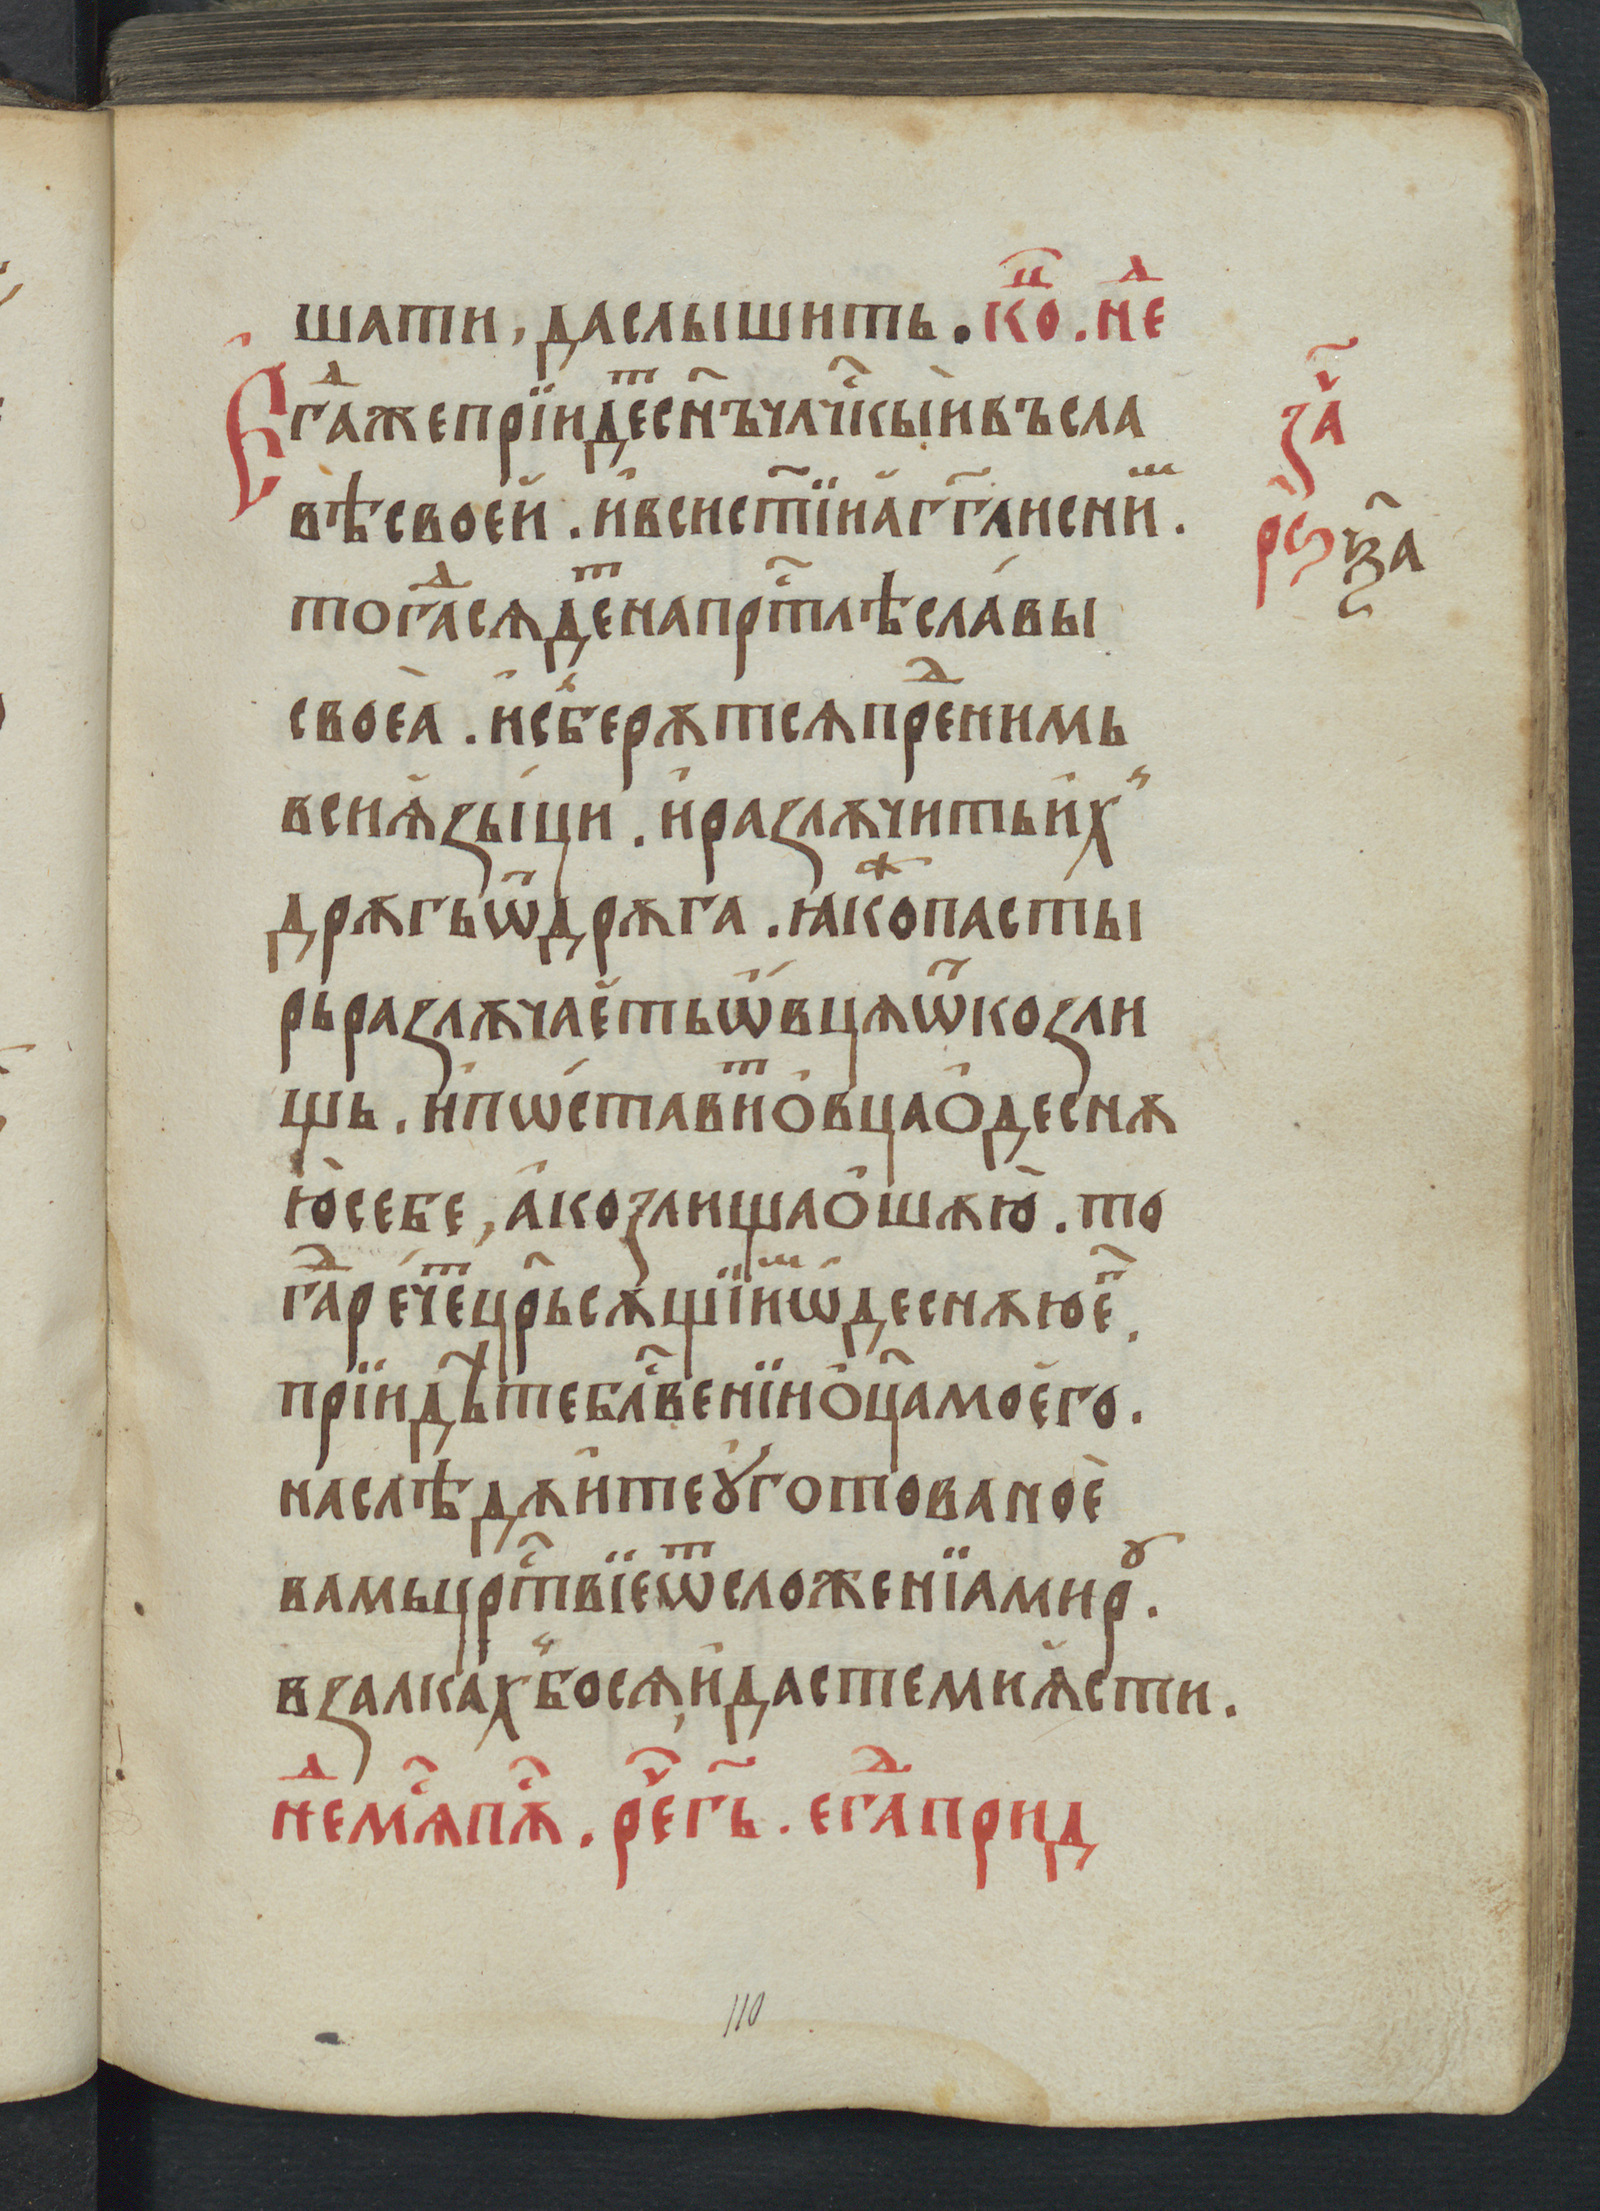 шати, да слышить. кⷪ҇ц. неⷣ
Егⷣаже прїидеⷮ сн҃ъ чл҃чⷭкыи въ сла
вѣ своеи. и вси ст҃їи аг҃гли с ниⷨ.
тогⷣа сядеⷮ на прⷭ҇тлѣ славы
своеа. и сⸯберѫтся преⷣ нимь
вси ѧзыци. и разлѫчить их
дрѫгь ѿ дрѫга. ꙗкоⷤ пасты
рь разлѫчаеть ѡвця ѿ козли
щь. и поставиⷮ овца одеснѫ
ю себе, а козлища ошѫю. то
гⷣа речеⷮ цр҃ь сѫщїиⷨ ѡдеснѫю е҃г.
прїидѣте блⷭ҇венїи оц҃а моего.
наслѣдѫите ѹготованое
вамь црⷭ҇твїе ѿ сложенїа мирꙋ.
взалкахⸯ бо ся, и дасте ми ѧсти.
неⷣ мⷭ҇ѧпⷭ҇ѧ. реⷱ҇ гь҃. егⷣа прид
заⷱ҇
рѕ҃ за҃
110